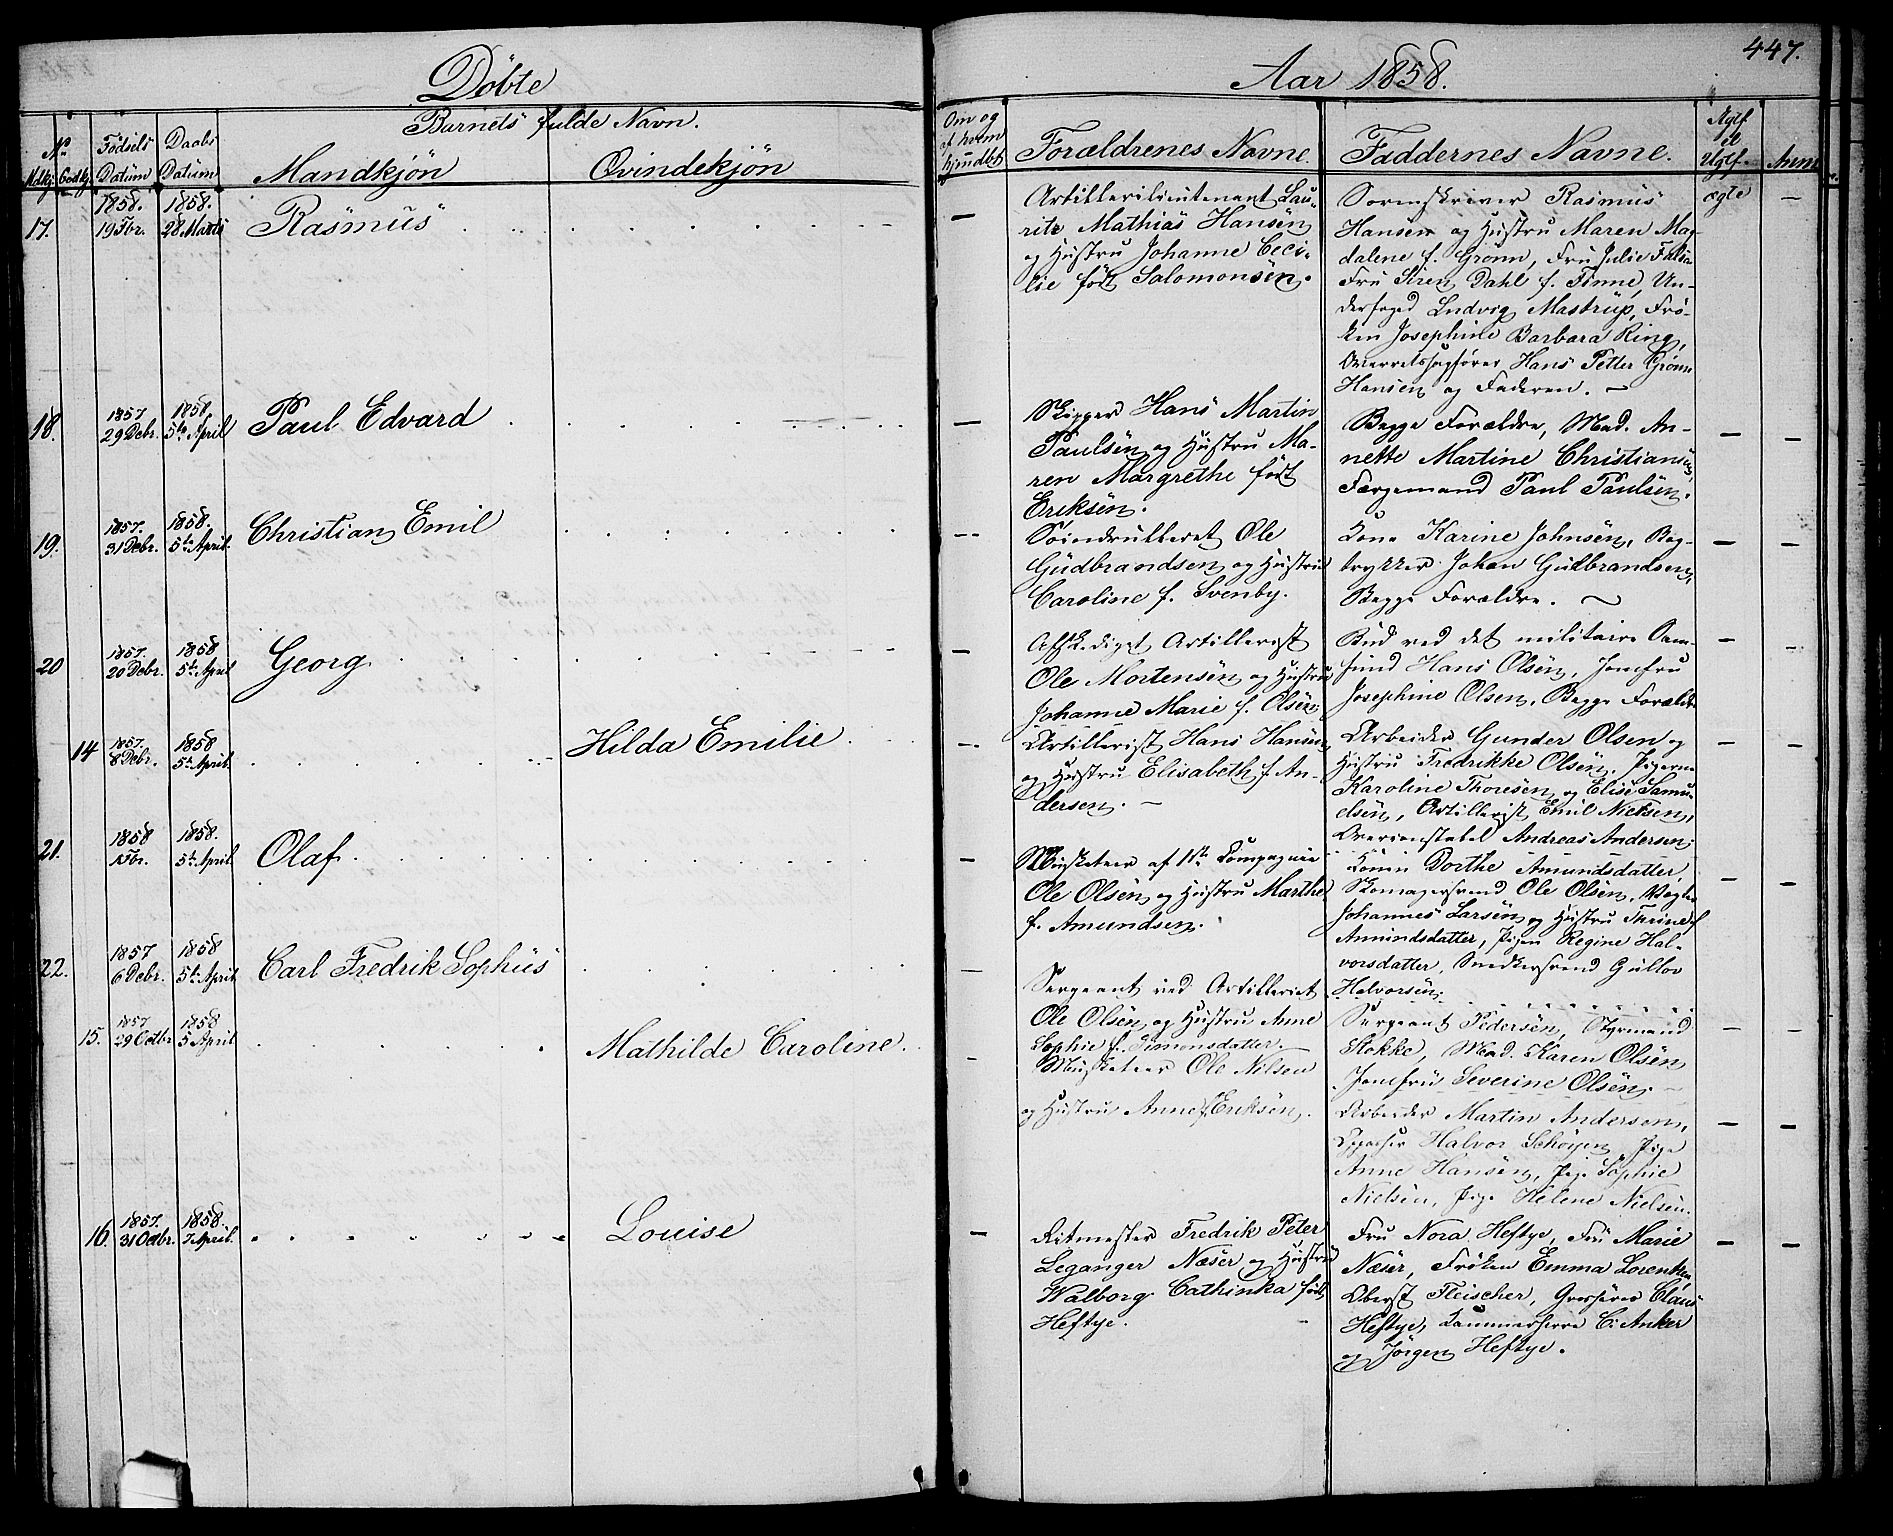 447.
Døbte
Aar 1858.
No
Mdkj. Qvdkj.
Fødsels Datum
Daabs Datum
Barnets fulde Navn.
Mandkjøn
Qvindekjøn
Om og af hvem hjemdøbt
Forældrenes Navne.
Faddernes Navne.
Ægt. el Uægt.
Anm
17.
1858. 19 Fbr.
1858. 28 Marts
Rasmus
Artillerilieutenant Lau-
ritz Mathias Hansen
og Hustru Johanne Ceci-
lie født Salomonsen.
Sorenskriver Rasmus
Hansen og Hustru Maren Mag-
dalene f. Grønn, Fru Julie
Fru Siren Dahl f. Finne, Un-
derfoged Ludvig Mastrup, Frø-
ken Josephine Barbara Ring,
Overretssagfører Hans Petter Grønn
Hansen og Faderen.
ægte
18.
1857 29 Debr.
1858 5te April
Paul Edvard
Skipper Hans Martin
Paulsen og Hustru Ma-
ren Margrethe født
Eriksen.
Begge Forældre, Mad. An-
nette Martine Christiansen,
Færgemand Paul Paulsen.
19.
1857. 31 Debr.
1858. 5te April.
Christian Emil
Søindrulleret Ole
Gudbrandsen og Hustru
Caroline f. Svenby.
Kone Karine Johnsen, Bog-
trykker Johan Gudbrandsen,
Begge Forældre.
20
1857. 20 Debr.
1858 5te April
Georg
Afskediget Artillerist
Ole Mortensen og Hustru
Johanne Marie f. Olsen
Bud ved det militaire Sam-
fund Hans Olsen, Jomfru
Josephine Olsen, Begge Forældre
14
1857. 8 Debr.
1858 5te April.
Hilda Emilie
Artillerist Hans Hansen
og Hustru Elisabeth f. An-
dersen.
Arbeider Gunder Olsen og
Hustru Fredrikke Olsen, Pigerne
Karoline Thoresen og Elise Samu-
elsen, Artillerist Emil Nielsen,
Overconstabel Andreas Andersen.
21.
1858 Fbr.
1858. 5te April
Olaf
Musketeer af Compagnie
Ole Olsen og Hustru Marthe
f. Amundsen.
Konen Dorthe Amundsdatter,
Skomagersvend Ole Olsen,
Johannes Larsen og Hustru Thrine
Amundsdatter, Pigen Regine Hal-
vorsdatter, Snedkersvend Gullov
Halvorsen.
22.
1857 6 Debr.
1858 5te April
Carl Fredrik Sophus
Sergeant ved Artilleriet
Ole Olsen og Hustru Anne
Sophie f. Simonsdatter.
Sergeant Pedersen, Styrmand
Stokke, Mad. Karen Olsen
Jomfru Severine Olsen.
15.
1857 29 Octbr
1858 5 April
Mathilde Caroline.
Musketeer Ole Nilsen
og Hustru Anne f. Eriksen.
Arbeider Martin Andersen,
Halvor Schøyen, Pige
Anne Hansen, Pige Sophie
Nielsen, Pige Helene Nielsen.
16.
1857. 31 Octbr.
1858. 7 April.
Louise
Ritmester Fredrik Peter
Leganger Næser og Hustru
Walborg Cathinka født
Heftye.
Fru Nora Heftye, Fru Marie
Næser, Frøken Emma Lorentzen
Oberst Fleischer, Grosserer Claus
Heftye, Kammerherre C: Anker
og Jørgen Heftye.